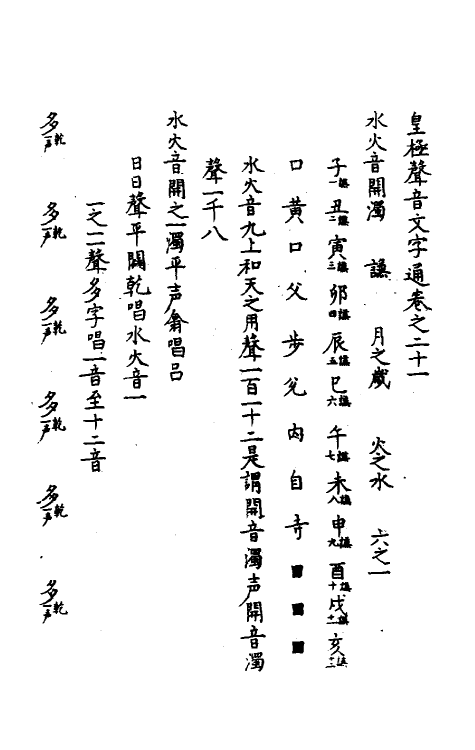 皇極聲音文字通卷之二十一
水火音開濁　謙　月之歲　火之水　六之一
子一謙丑二謙寅三謙卯四謙辰五謙巳六謙午七謙未八謙申九謙酉十謙戌十一謙亥十二謙
口黃口父步兊內自寺■■■
水火音九上和天之用聲一百一十二是謂開音濁声開音濁
聲一千八
水火音開之一濁平声翕唱呂
日日聲平闢乾唱水火音一
一之二聲多字唱一音至十二音
多乾一声　多乾一声　多乾一声　多乾一声　多乾一声　多乾一声